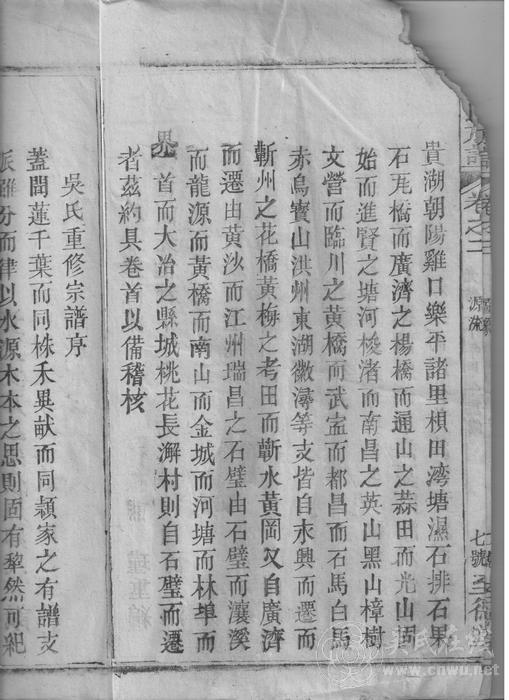 族譜 卷之二 源流 七號 至德堂
貴湖朝陽雞口樂平諸里楨田湾塘濕石排石果
石瓦橋而廣濟之楊橋而通山之蒜田而光山固
始而進賢之塘河梭渚而南昌之英山黑山樟樹
文營而臨川之黃橋而武寍而都昌而石馬白馬
赤烏寳山洪州東湖徽濤等支皆自永興而遷而
蘄州之花橋黃梅之考田而蘄水黃岡又自廣濟
而遷由黃沙而江州瑞昌之石壁由石壁而瀼溪
而龍源而黃橋而南山而金城而河塘而林埠而
界首而大冶之縣城桃花長澥村則自石壁而遷
者茲約具卷首以備稽核
吳氏重修宗譜序
蓋聞蓮千葉而同株禾異畝而同穎家之有譜支
派雖分而律以水源木本之思則固有犂然可紀
吳氏在線
www.cnwu.net